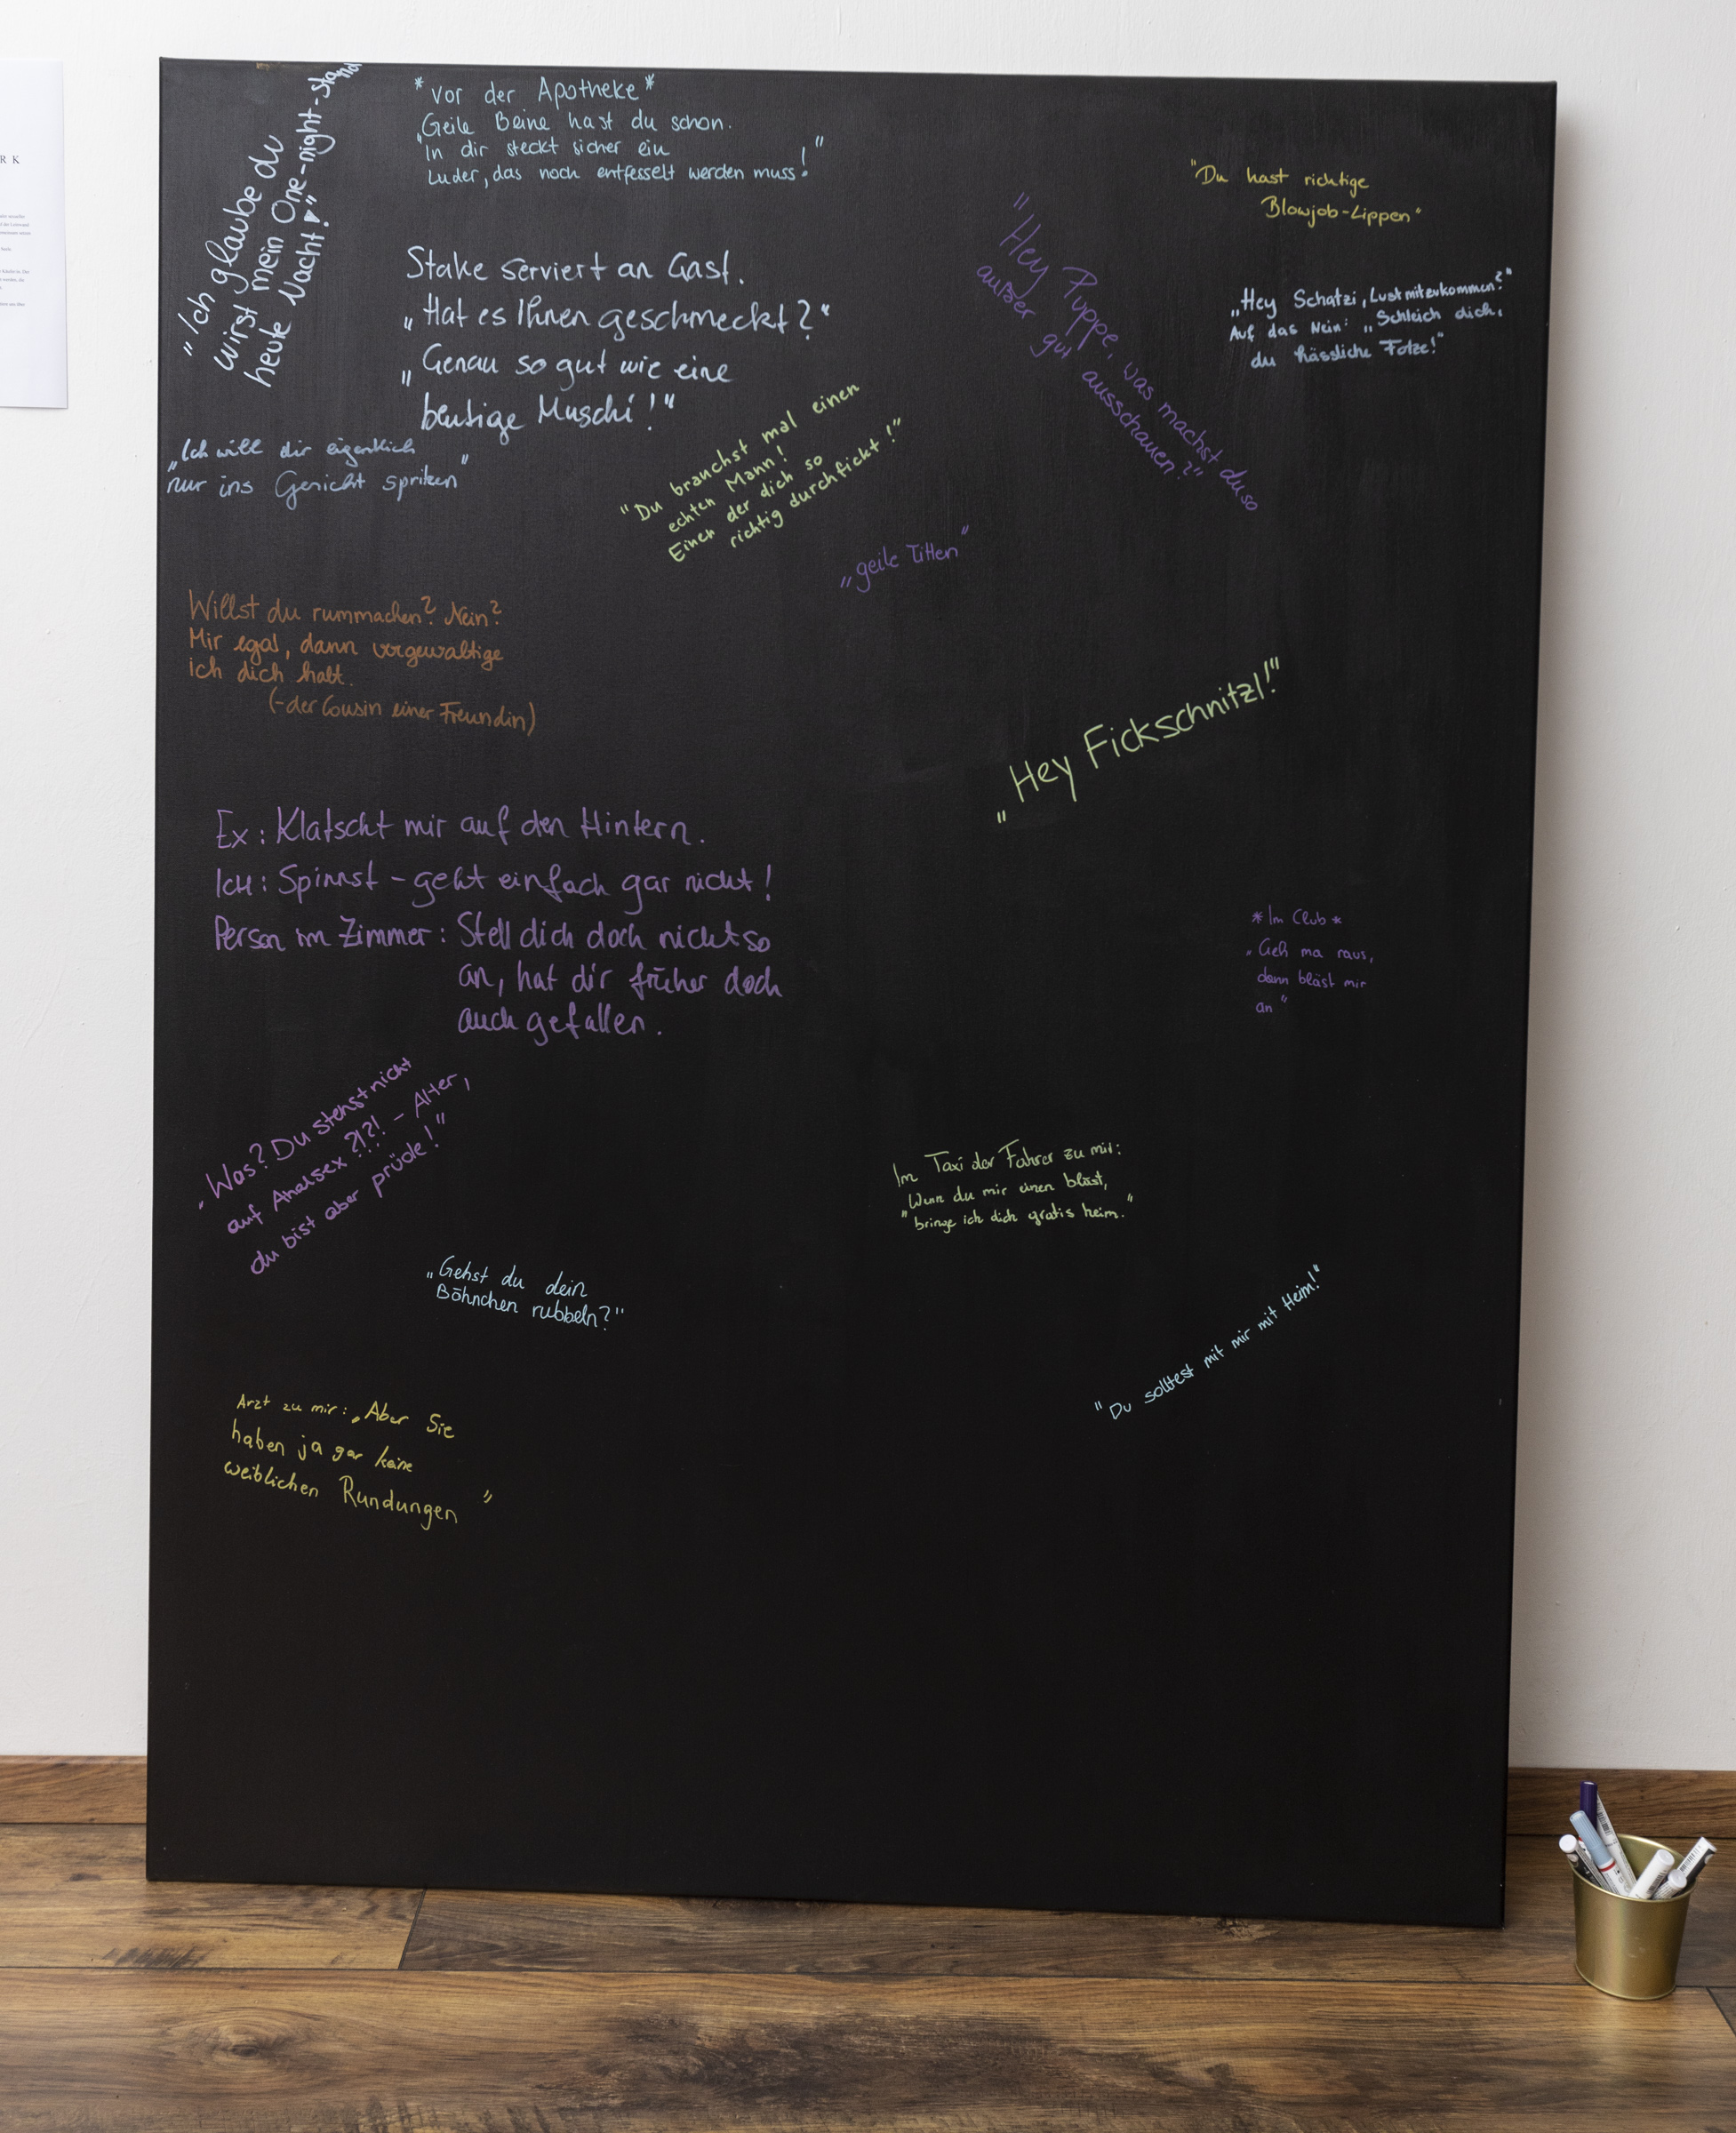 "Ich glaube du
wirst mein One-night-Stand
heute Nacht!"
*Vor der Apotheke*
"Geile Beine hast du schon.
In dir steckt sicher ein
Luder, das noch entfesselt werden muss!"
"Du hast richtige
Blowjob-Lippen"
Stake serviert an Gast.
„Hat es Ihnen geschmeckt?"
„Genau so gut wie eine
blutige Muschi!"
"Hey Puppe, was machst du so
außer gut ausschauen?"
„Hey Schatzi, Lust mitzukommen?"
Auf das Nein: „Schleich dich,
du hässliche Fotze!"
„Ich will dir eigentlich
nur ins Gesicht spritzen"
"Du brauchst mal einen
echten Mann!
Einen der dich so
richtig durchfickt!"
„geile Titten"
Willst du rummachen? Nein?
Mir egal, dann vergewaltige
ich dich halt.
(-der Cousin einer Freundin)
„Hey Fickschnitzl!"
Ex: Klatscht mir auf den Hintern.
Ich: Spinnst - geht einfach gar nicht!
Person im Zimmer: Stell dich doch nicht so
an, hat dir früher doch
auch gefallen.
*Im Club*
„Geh ma raus,
dann bläst mir
an"
„Was? Du stehst nicht
auf Analsex?!?! - Alter,
du bist aber prüde!"
Im Taxi der Fahrer zu mir:
"Wenn du mir einen bläst,
bringe ich dich gratis heim."
„Gehst du dein
Böhnchen rubbeln?"
"Du solltest mit mir mit Heim!"
Arzt zu mir: „Aber Sie
haben ja gar keine
weiblichen Rundungen"
RK